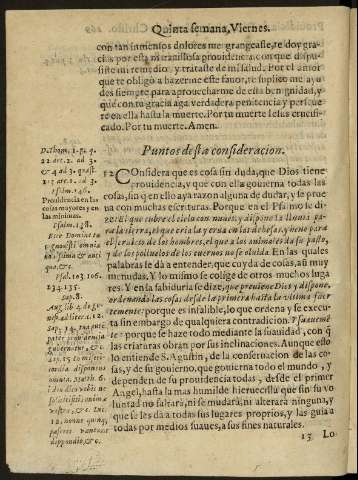 Quinta semana, Viernes.
con tan inmensos dolores me grangeaste, te doy gra-
cias por esta marauillosa prouidencia con que dispu-
siste mi remedio, y trataste de mi salud. Por el amor
que te obligó a hazerme este fauor, te suplico me ayu
des siempre para aprouecharme de esta benignidad, y
que con tu gracia aga verdadera penitencia y perseue
re en ella hasta la muerte. Por tu muerte Iesus crucifi-
cado. Por tu muerte. Amen.
Puntos desta consideracion.
D. Thom. 1. p. q.
22. art. 2. ad 3.
& 4 ad 3. quæst.
Psalm. 146.
Prouidencia en las
cosas mayores y en
las minimas.
Psalm. 138.
Ecce Domine tu
cognouisti omnia
nouissima & anti
qua, &c.
Psal. 103. 106.
134. 135.
Sap. 8.
Aug. lib. 4. de ge-
nes. ad liter. c. 12.
Sap. 14. tua autem
pater prouidentia
gubernat, &c.
12 Considera que es cosa sin duda, que Dios tiene
prouidencia, y que con ella gouierna todas las
cosas, sin q en ello aya razon alguna de dudar, y se prue
ua con muchas escrituras. Porque en el Psalmo se di-
ze: El que cubre el cielo con nuues, y dispone la lluuia pa-
ra la tierra, el que cria la yerua en las dehesas, y heno para
el seruicio de los hombres, el que a los animales da su pasto,
y de los polluelos de los cueruos no se oluida. En las quales
palabras se dá a entender, que cuyda de cosas, aũ muy
menudas, Y lo mismo se colige de otros muchos luga
res. Y en la sabiduria se dize, que preuiene Dios y dispone,
ordenando las cosas desde la primera hasta la vltima fuer
temente: porque es infalible, lo que ordena y se execu-
ta sin embargo de qualquiera contradicion. Y suauemẽ
te: porque de haze todo mediante la suauidad, con q
las criaturas obran por sus inclinaciones. Aunque esto
lo entiende S. Agustin, de la conseruacion de las co-
sas, y de su gouierno, que gouierna todo el mundo, y
dependen de su prouidencia todas, desde el primer
Angel, hasta la mas humilde hieruecilla que sin su vo
luntad no saltará, ni se mudará, ni alterará ninguna, y
que se les dá a todas sus lugares proprios, y las guia a
todas por medios suaues, a sus fines naturales.
13 Lo